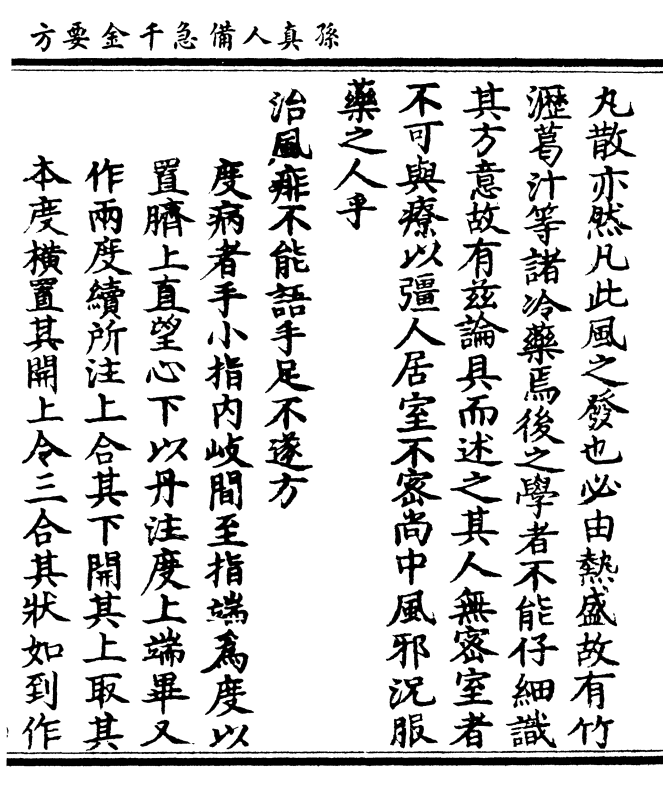 孫真人備急千金要方
丸散亦然凡此風之發也必由熱盛故有竹
瀝葛汁等諸冷藥焉後之學者不能仔細識
其方意故有茲論具而述之其人無密室者
不可與療以彊人居室不密尚中風邪況服
藥之人乎
治風痱不能語手足不遂方
度病者手小指內岐間至指端為度以
置臍上直望心下以丹注度上端畢又
作兩度續所注上合其下開其上取其
本度橫置其開上令三合其狀如到作